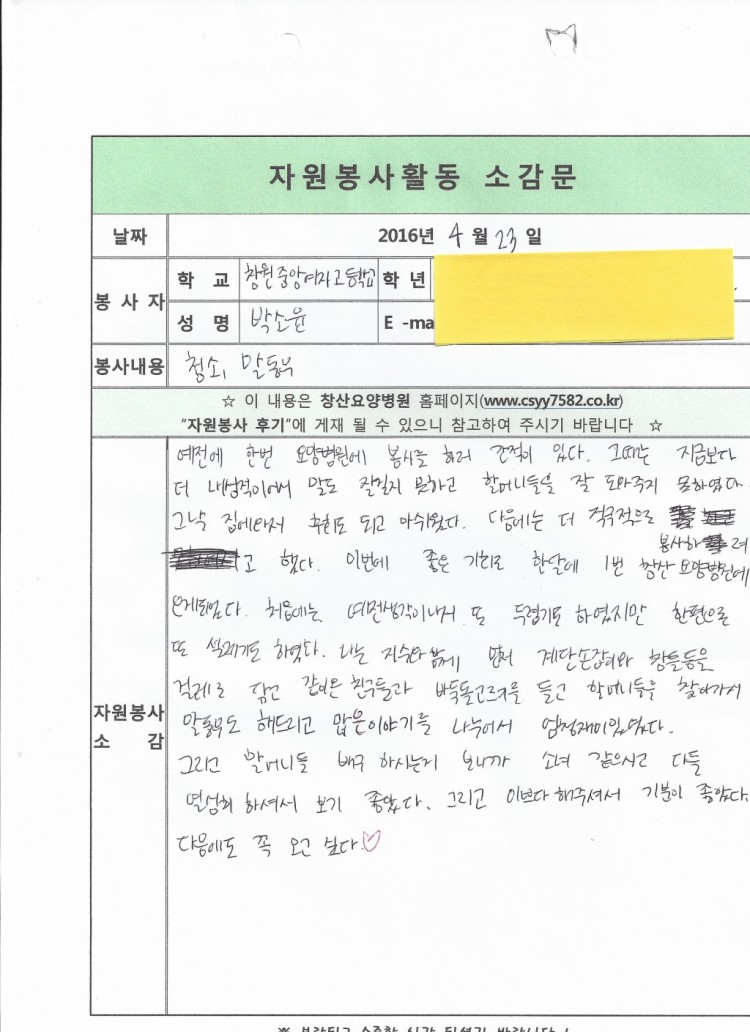 자원봉사활동 소감문
날짜 2016년 4 월 23 일
봉 사 자
학 교 창원중앙여자고등학교 학 년
성 명 박소윤 E -ma
봉사내용 청소, 말동무
☆ 이 내용은 창산요양병원 홈페이지(www.csyy7582.co.kr)
"자원봉사 후기"에 게재 될 수 있으니 참고하여 주시기 바랍니다 ☆
자원봉사
소 감
예전에 한번 요양병원에 봉사를 하러 간적이 있다. 그때는 지금보다
더 내성적이어서 말도 잘걸지 못하고 할머니들을 잘 도와주지 못하였다.
그날 집에와서 후회도 되고 아쉬웠다. 다음에는 더 적극적으로
봉사하려
고 했다. 이번에 좋은 기회로 한달에 1번 창산요양병원에
오게되었다. 처음에는 예전생각이나서 또 두렵기도 하였지만 한편으로
또 설레기도 하였다. 나는 지수와 함께 먼저 계단손잡이와 창틀등을
걸레로 닦고 같이온 친구들과 바둑돌고르기를 들고 할머니들을 찾아가서
말동무도 해드리고 많은이야기를 나누어서 엄청재미있었다.
그리고 할머니들 배구 하시는거 보니까 소녀 같으시고 다들
열심히 하셔서 보기 좋았다. 그리고 이쁘다해주셔서 기분이 좋았다.
다음에도 꼭 오고 싶다.♡